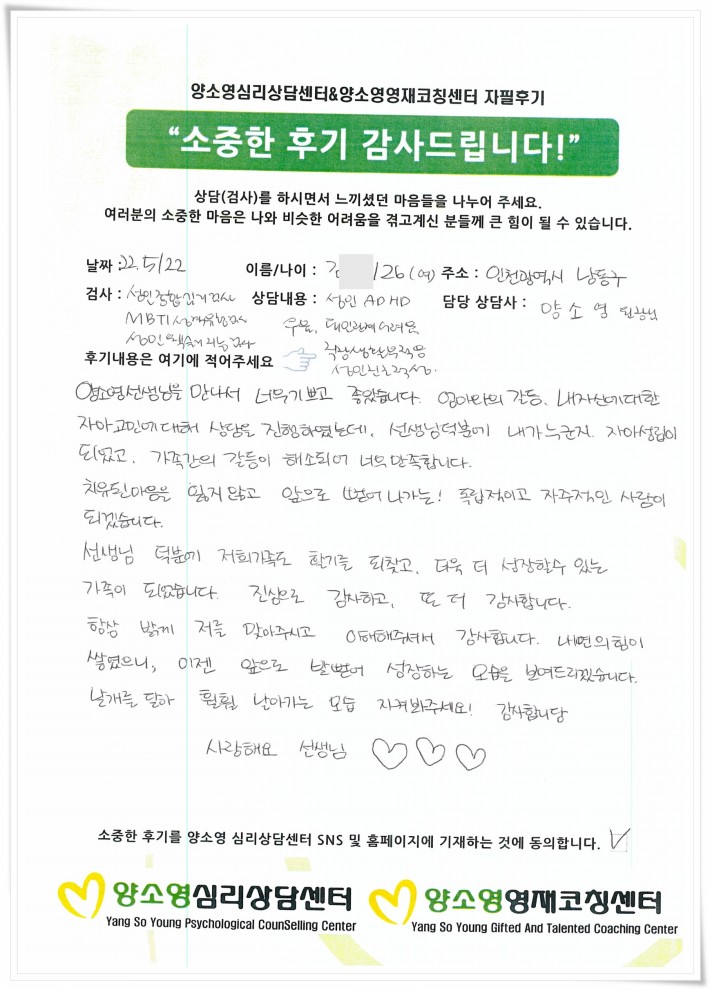 양소영심리상담센터&양소영영재코칭센터 자필후기
“소중한 후기 감사드립니다!”
상담(검사)를 하시면서 느끼셨던 마음들을 나누어 주세요.
여러분의 소중한 마음은 나와 비슷한 어려움을 겪고계신 분들께 큰 힘이 될 수 있습니다.
날짜 : 22.5/22 이름/나이 : 김 /26 (여) 주소 : 인천광역시 남동구
검사 : 성인종합심리검사 상담내용 : 성인 ADHD 담당 상담사 : 양소영 원장님
MBTI 성격유형검사 우울, 대인관계 어려움
성인웩슬러지능검사 직장생활부적응
후기내용은 여기에 적어주세요 성인진로적성.
양소영선생님을 만나서 너무기쁘고 좋았습니다. 엄마와의 갈등, 내자신에대한
자아고민에대해 상담을 진행하였는데, 선생님덕분에 내가누군지 자아성립이
되었고, 가족간의 갈등이 해소되어 너무만족합니다.
치유된마음을 잃지않고 앞으로 뻗어나가는! 독립적이고 자주적인 사람이
되겠습니다.
선생님 덕분에 저희가족도 활기를 되찾고, 더욱 더 성장할수 있는
가족이 되었습니다. 진심으로 감사하고, 또 더 감사합니다.
항상 밝게 저를 맞아주시고 이해해주셔서 감사합니다. 내면의힘이
쌓였으니, 이젠 앞으로 발뻗어 성장하는 모습을 보여드리겠습니다.
날개를 달아 훨훨 날아가는 모습 지켜봐주세요! 감사합니당
사랑해요 선생님 ♡♡♡
소중한 후기를 양소영 심리상담센터 SNS 및 홈페이지에 기재하는 것에 동의합니다. ☑
양소영심리상담센터 양소영영재코칭센터
Yang So Young Psychological CounSelling Center Yang So Young Gifted And Talented Coaching Center